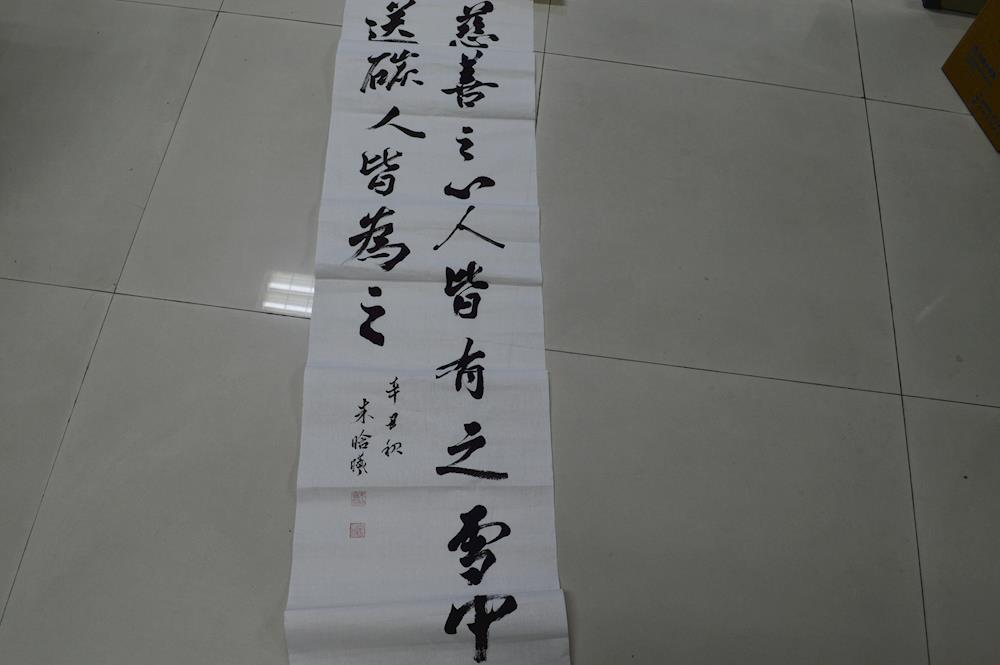 慈善之心人皆有之雪中
送碳人皆為之
辛丑秋
朱晗曦